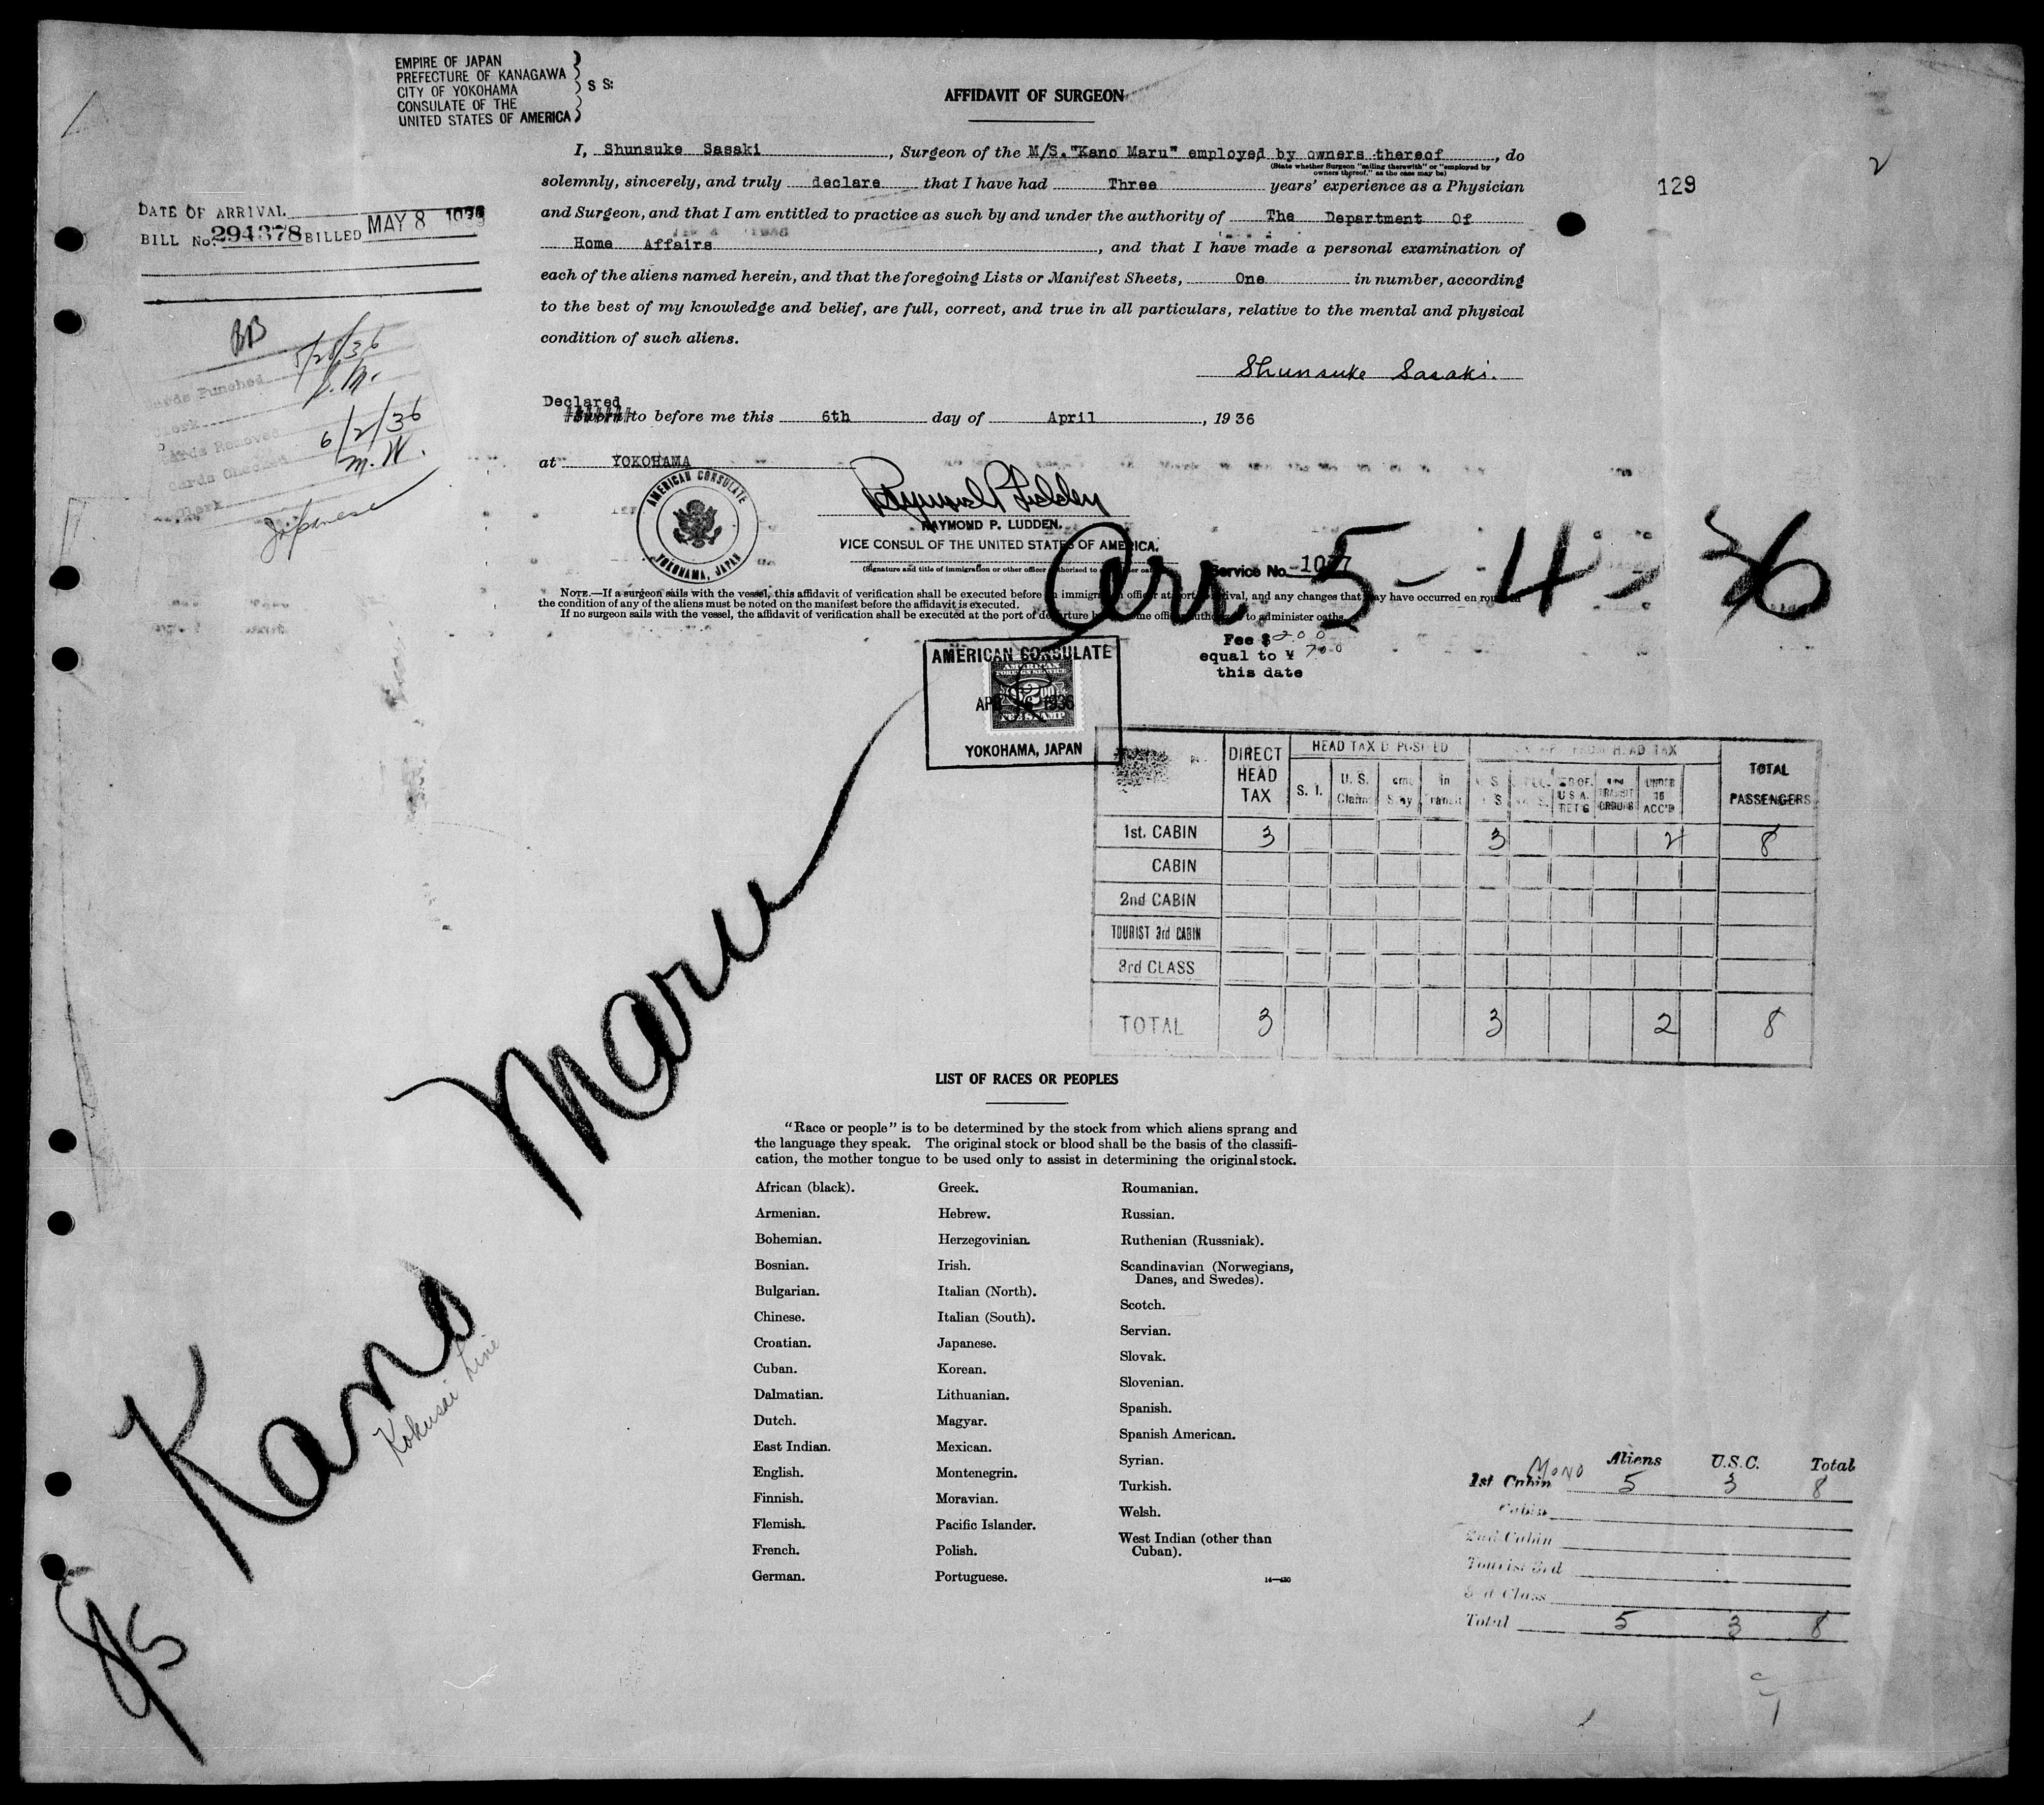 EMPIRE OF JAPAN
PREFECTURE OF KANAGAWA
CITY OF YOKOHAMA
CONSULATE OF THE
UNITED STATES OF AMERICA
S S:
AFFIDAVIT OF SURGEON
I, Shunsuke Sasaki, Surgeon of the M/S."Kano Maru" employed by owners thereof, do
(State whether Surgeon "sailing therewith" or "employed by
owners thereof," as the case may be)
solemnly, sincerely, and truly declare that I have had Three years' experience as a Physician
and Surgeon, and that I am entitled to practice as such by and under the authority of The Department Of
Home Affairs, and that I have made a personal examination of
each of the aliens named herein, and that the foregoing Lists or Manifest Sheets, One in number, according
to the best of my knowledge and belief, are full, correct, and true in all particulars, relative to the mental and physical
condition of such aliens.
Shunsuke Sasaki.
Declared
to before me this 6th day of April, 1936
at YOKOHAMA
129
2
DATE OF ARRIVAL
BILL No. 294378 BILLED MAY 8 1936
BB
Cards Punched 5/25/36
J.M.
Clerk
Cards Removed
Cards Checked 6/2/36
M.W.
Clerk
Japanese
AMERICAN CONSULATE
YOKOHAMA, JAPAN
RAYMOND P. LUDDEN.
VICE CONSUL OF THE UNITED STATES OF AMERICA.
Service No. 1077
Arr 5-4-36
NOTE.—If a surgeon sails with the vessel, this affidavit of verification shall be executed before an immigration officer at port of arrival, and any changes that may have occurred en route in
the condition of any of the aliens must be noted on the manifest before the affidavit is executed.
If no surgeon sails with the vessel, the affidavit of verification shall be executed at the port of departure before some officer authorized to administer oaths.
Fee $2.00
equal to ¥ 7.00
this date
AMERICAN CONSULATE
AMERICAN
FOREIGN SERVICE
FEE STAMP
APR 6 1936
YOKOHAMA, JAPAN
DIRECT HEAD TAX
HEAD TAX DEPOSITED
HEAD TAX
TOTAL PASSENGERS
S. I.
U. S. Claim
in Transit
U.S.A. RET'G
TRANSIT GROUPS
UNDER 16 ACC'P
1st. CABIN 3 3 2 8
CABIN
2nd CABIN
TOURIST 3rd CABIN
3rd CLASS
TOTAL 3 3 2 8
Kano Maru
Kokusai Line
LIST OF RACES OR PEOPLES
"Race or people" is to be determined by the stock from which aliens sprang and
the language they speak. The original stock or blood shall be the basis of the classifi-
cation, the mother tongue to be used only to assist in determining the original stock.
African (black).
Armenian.
Bohemian.
Bosnian.
Bulgarian.
Chinese.
Croatian.
Cuban.
Dalmatian.
Dutch.
East Indian.
English.
Finnish.
Flemish.
French.
German.
Greek.
Hebrew.
Herzegovinian.
Irish.
Italian (North).
Italian (South).
Japanese.
Korean.
Lithuanian.
Magyar.
Mexican.
Montenegrin.
Moravian.
Pacific Islander.
Polish.
Portuguese.
Roumanian.
Russian.
Ruthenian (Russniak).
Scandinavian (Norwegians,
Danes, and Swedes).
Scotch.
Servian.
Slovak.
Slovenian.
Spanish.
Spanish American.
Syrian.
Turkish.
Welsh.
West Indian (other than
Cuban).
Aliens U.S.C. Total
Mono
1st Cabin 5 3 8
Cabin
2nd Cabin
Tourist 3rd
3rd Class
Total 5 3 8